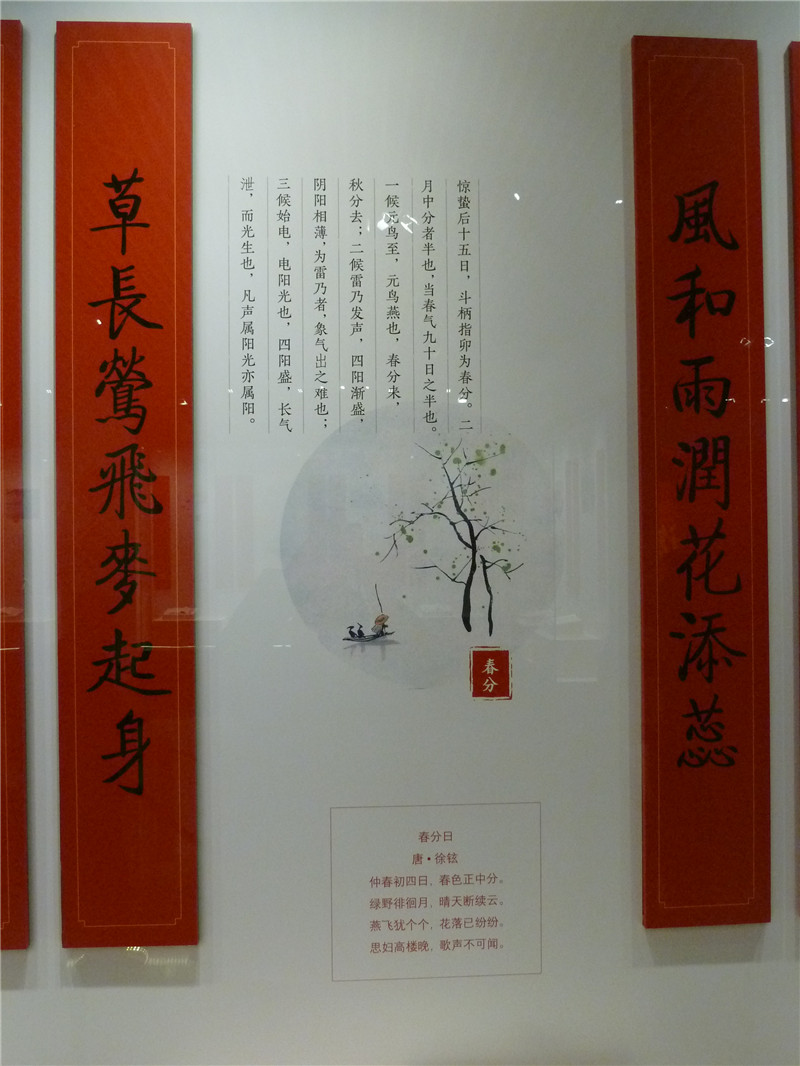 風和雨潤花添蕊
草長鶯飛麥起身
惊蛰后十五日，斗柄指卯为春分。二
月中分者半也，当春气九十日之半也。
一候元鸟至，元鸟燕也，春分来，
秋分去；二候雷乃发声，四阳渐盛，
阴阳相薄，为雷乃者，象气出之难也；
三候始电，电阳光也，四阳盛，长气
泄，而光生也，凡声属阳光亦属阳。
春分
春分日
唐·徐铉
仲春初四日，春色正中分。
绿野徘徊月，晴天断续云。
燕飞犹个个，花落已纷纷。
思妇高楼晚，歌声不可闻。